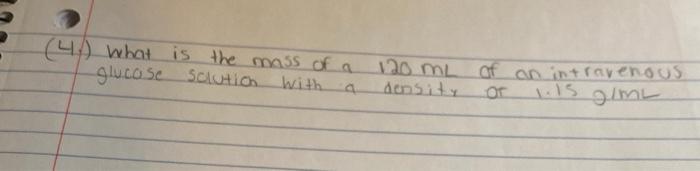 (4.) What is the mass of a 120 mL of an intravenous
glucose solution with a density or 1.15 g/mL